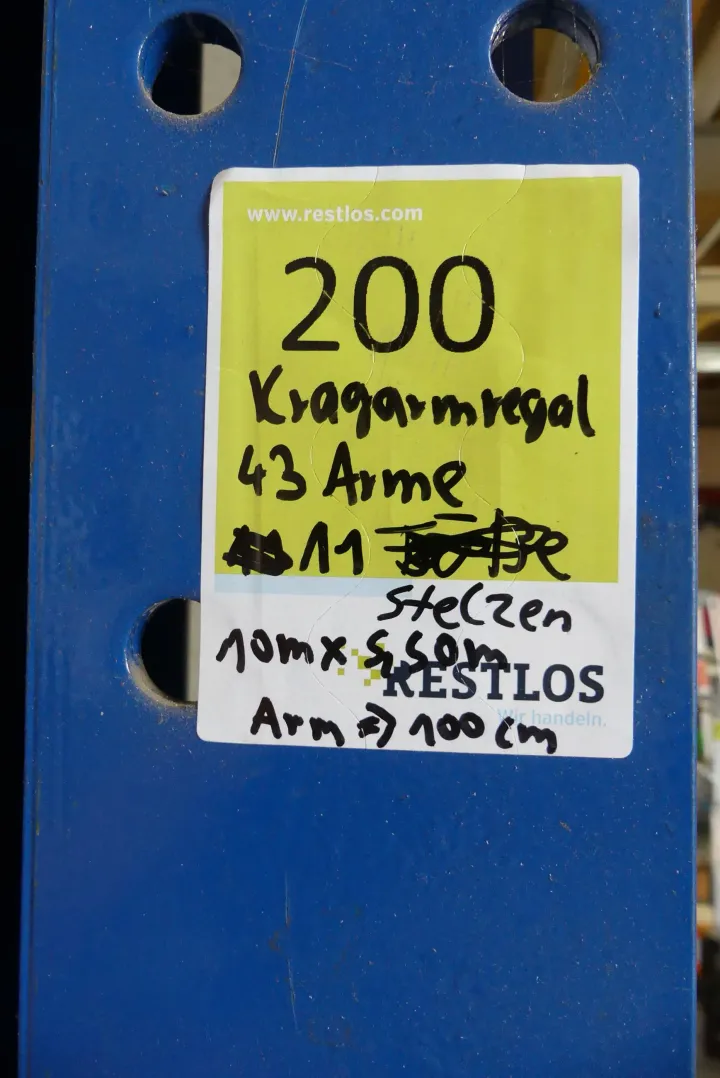 www.restlos.com
200
Kragarmregal
43 Arme
11
Stelzen
10m x 5,50m
RESTLOS
Wir handeln.
Arm => 100 cm